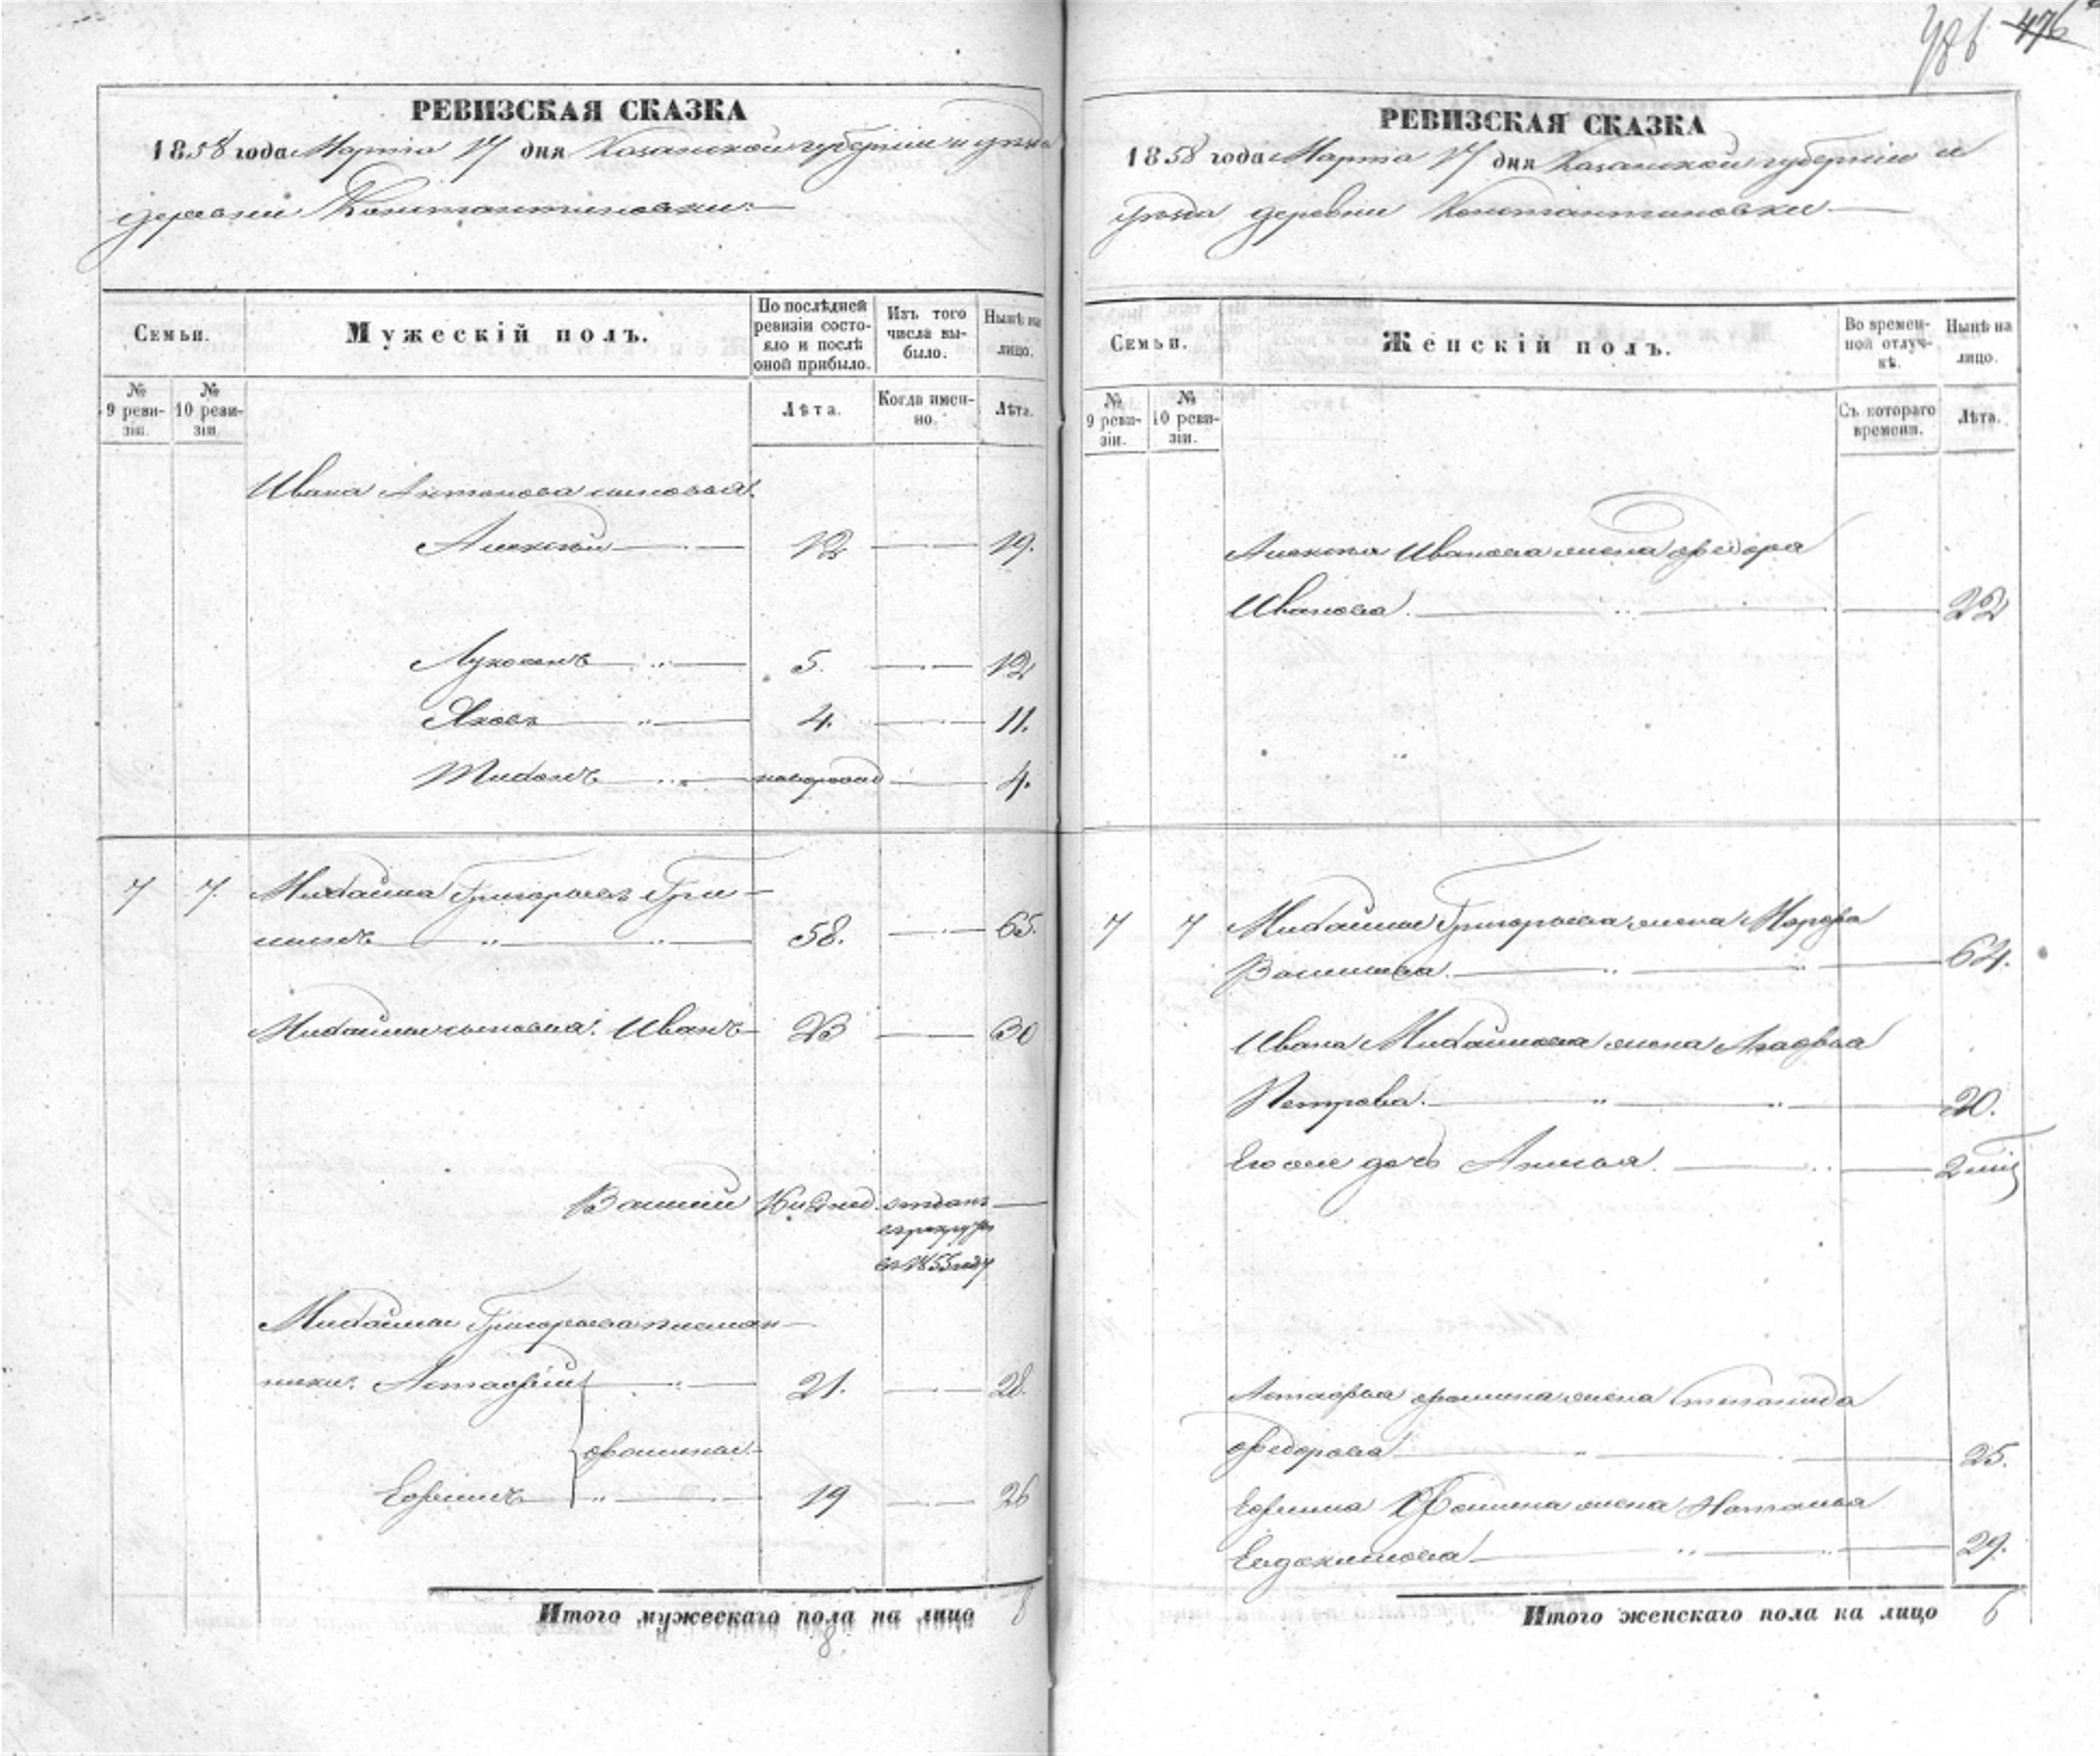 476
РЕВИЗСКАЯ СКАЗКА
1858 года Марта 17 дня Казанской губернiи и уѣзда
деревни Константиновки.
Семьи.
Мужескій полъ.
По послѣдней ревизіи состояло и послѣ оной прибыло.
Изъ того числа выбыло.
Нынѣ на лицо.
№ 9 ревизіи.
№ 10 ревизіи.
Лѣта.
Когда именно.
Лѣта.
Ивана Антонова сыновья:
Алексѣй 12 19.
5. 12
Яковъ 4. 11.
Тихонъ новорожд 4.
7 7. Михайла Григорьевъ
58. 65.
Михайлы сыновья: Иванъ 23 30
Василій отданъ
въ рекруты
въ 1855 году
Михайлы Григорьева племян-
ники: Астафій 21. 28.
Фомины
Ефимъ 19 26
Итого мужескаго пола на лицо 8
8
РЕВИЗСКАЯ СКАЗКА
1858 года Марта 17 дня Казанской губернiи и
уѣзда деревни Константиновки
Семьи.
Женскій полъ.
Во временной отлучкѣ.
Нынѣ на лицо.
№ 9 ревизіи.
№ 10 ревизіи.
Съ котораго времени.
Лѣта.
Алексѣя Иванова жена Федора
Иванова. 22
7 7 Михайлы Григорьева жена Марфа
Васильева. 64.
Ивана Михайлова жена Агафья
Петрова. 20.
Его же дочь
Астафья Фомина жена Степанида
Федорова 25.
Ефима Фомина жена Наталья
Евдокимова 29.
Итого женскаго пола на лицо 6